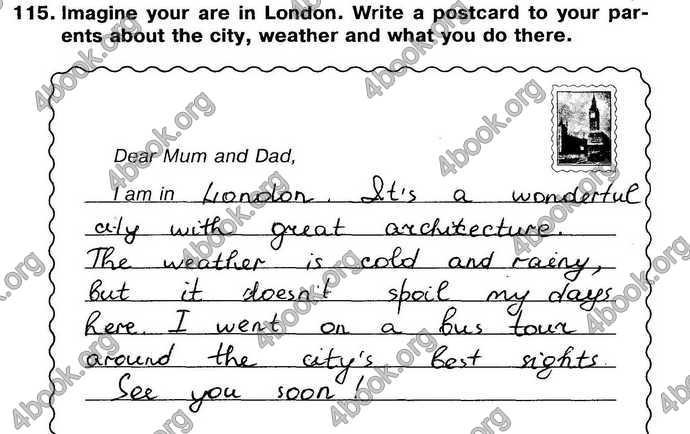 115. Imagine your are in London. Write a postcard to your par-
ents about the city, weather and what you do there.
Dear Mum and Dad,
I am in London. It's a wonderful
city with great architecture.
The weather is cold and rainy,
but it doesn't spoil my days
here. I went on a bus tour
around the city's best sights.
See you soon!
4book.org
4book.org
4book.org
4book.org
4book.org
4book.org
4book.org
4book.org
4book.org
4book.org
4book.org
4book.org